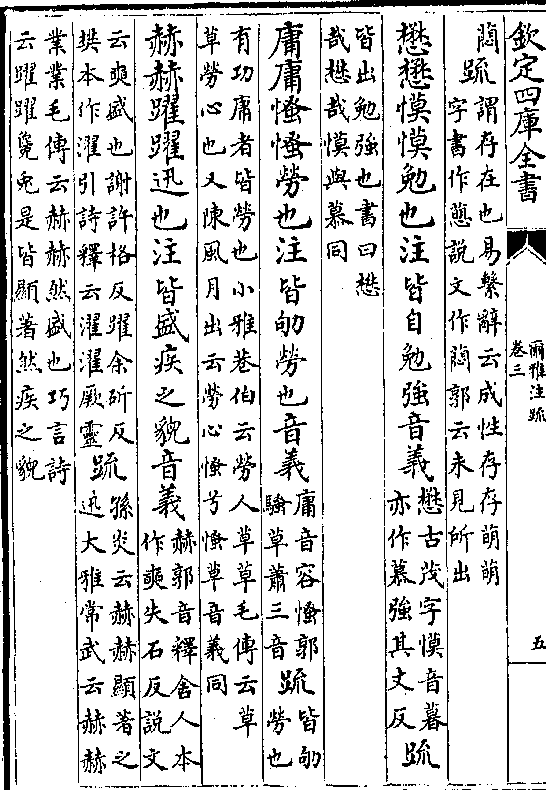 欽定四庫全書
爾雅注疏
卷三
五
蕳
疏
謂存在也易繫辭云成性存存萌萌
字書作蕄說文作蕳郭云未見所出
懋懋慔慔勉也注皆自勉強音義
懋古茂字慔音暮
亦作慕強其丈反
疏
皆出勉強也書曰懋
哉懋哉慔與慕同
庸庸慅慅勞也注皆劬勞也音義
庸音容慅郭
騷草蕭三音
疏
皆劬
勞也
有功庸者皆勞也小雅巷伯云勞人草草毛傳云草
草勞心也又陳風月出云勞心慅兮慅草音義同
赫赫躍躍迅也注皆盛疾之貌音義
赫郭音釋舍人本
作奭失石反說文
云奭盛也謝許格反躍余斫反
樊本作濯引詩釋云濯濯厥靈
疏
孫炎云赫赫顯著之
迅大雅常武云赫赫
業業毛傳云赫赫然盛也巧言詩
云躍躍毚兔是皆顯著然疾之貌